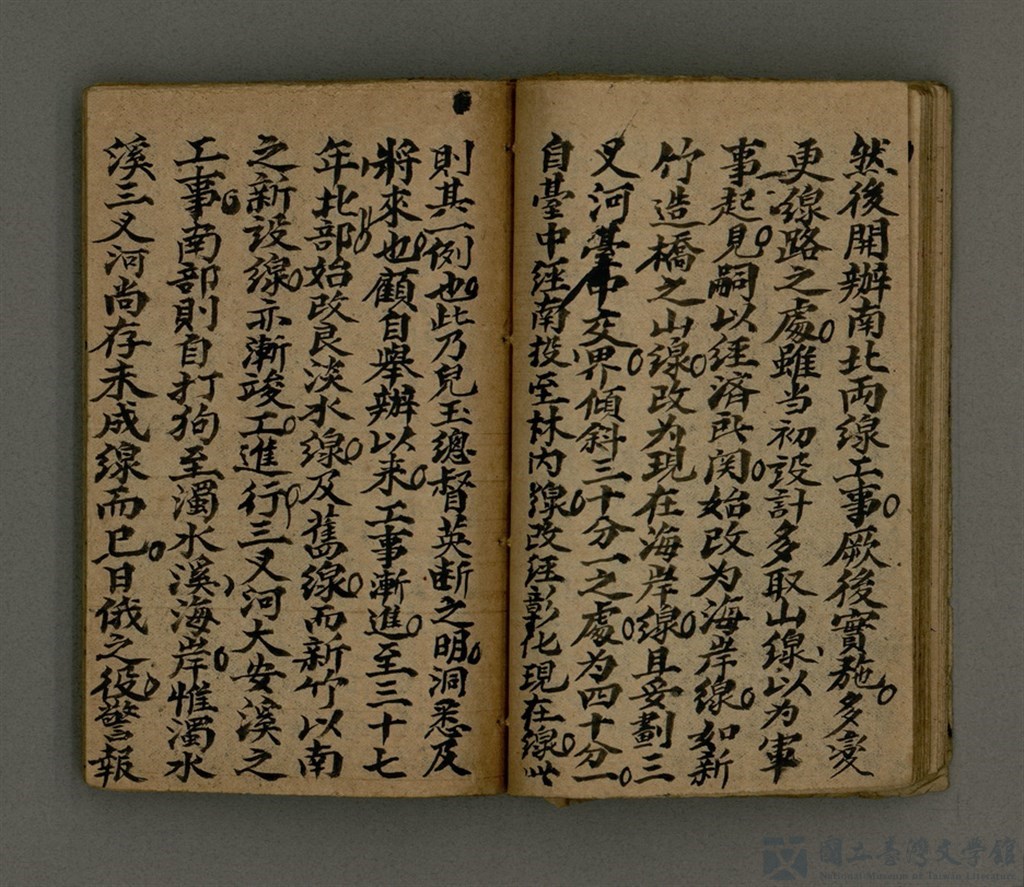 然後開辦南北両線工事。厥後實施。多変
更線路之處。雖当初設計多取山線、以為軍
事起見。嗣以経済所関。始改为海岸線。如新
竹造橋之山線。改为現在海岸線。且妥劃三
叉河臺中交界。傾斜三十分一之處。为四十分一。
自臺中経南投至林内線。改経彰化現在線。此
則其一例也。此乃兒玉總督英断之明。洞悉及
將來也。顧自舉辦以来。工事漸進。至三十七
年。北部始改良淡水線。及舊線。而新竹以南
之新設線。亦漸竣工。進行。三叉河大安溪之
工事。南部則自打狗至濁水溪、海岸。惟濁水
溪三叉河尚存未成線而已。日俄之役。警報
國立臺灣文學館
National Museum of Taiwan Literature